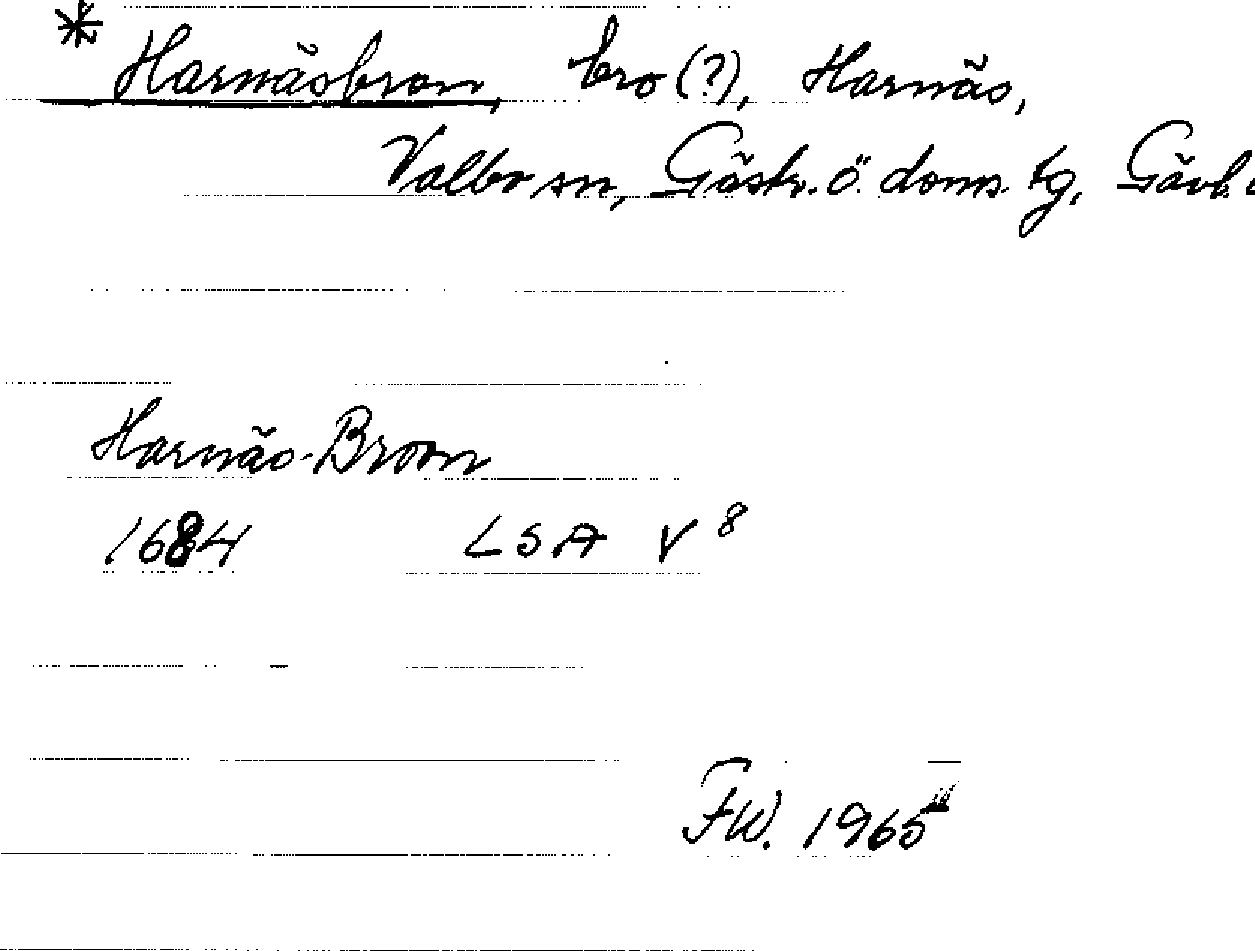 * Harnäsbron, bro (?), Harnäs,
Valbo sn, Gästr. ö. doms. tg, Gävleb.
Harnäs-Broon
1684 LSA V 8
F.W. 1965